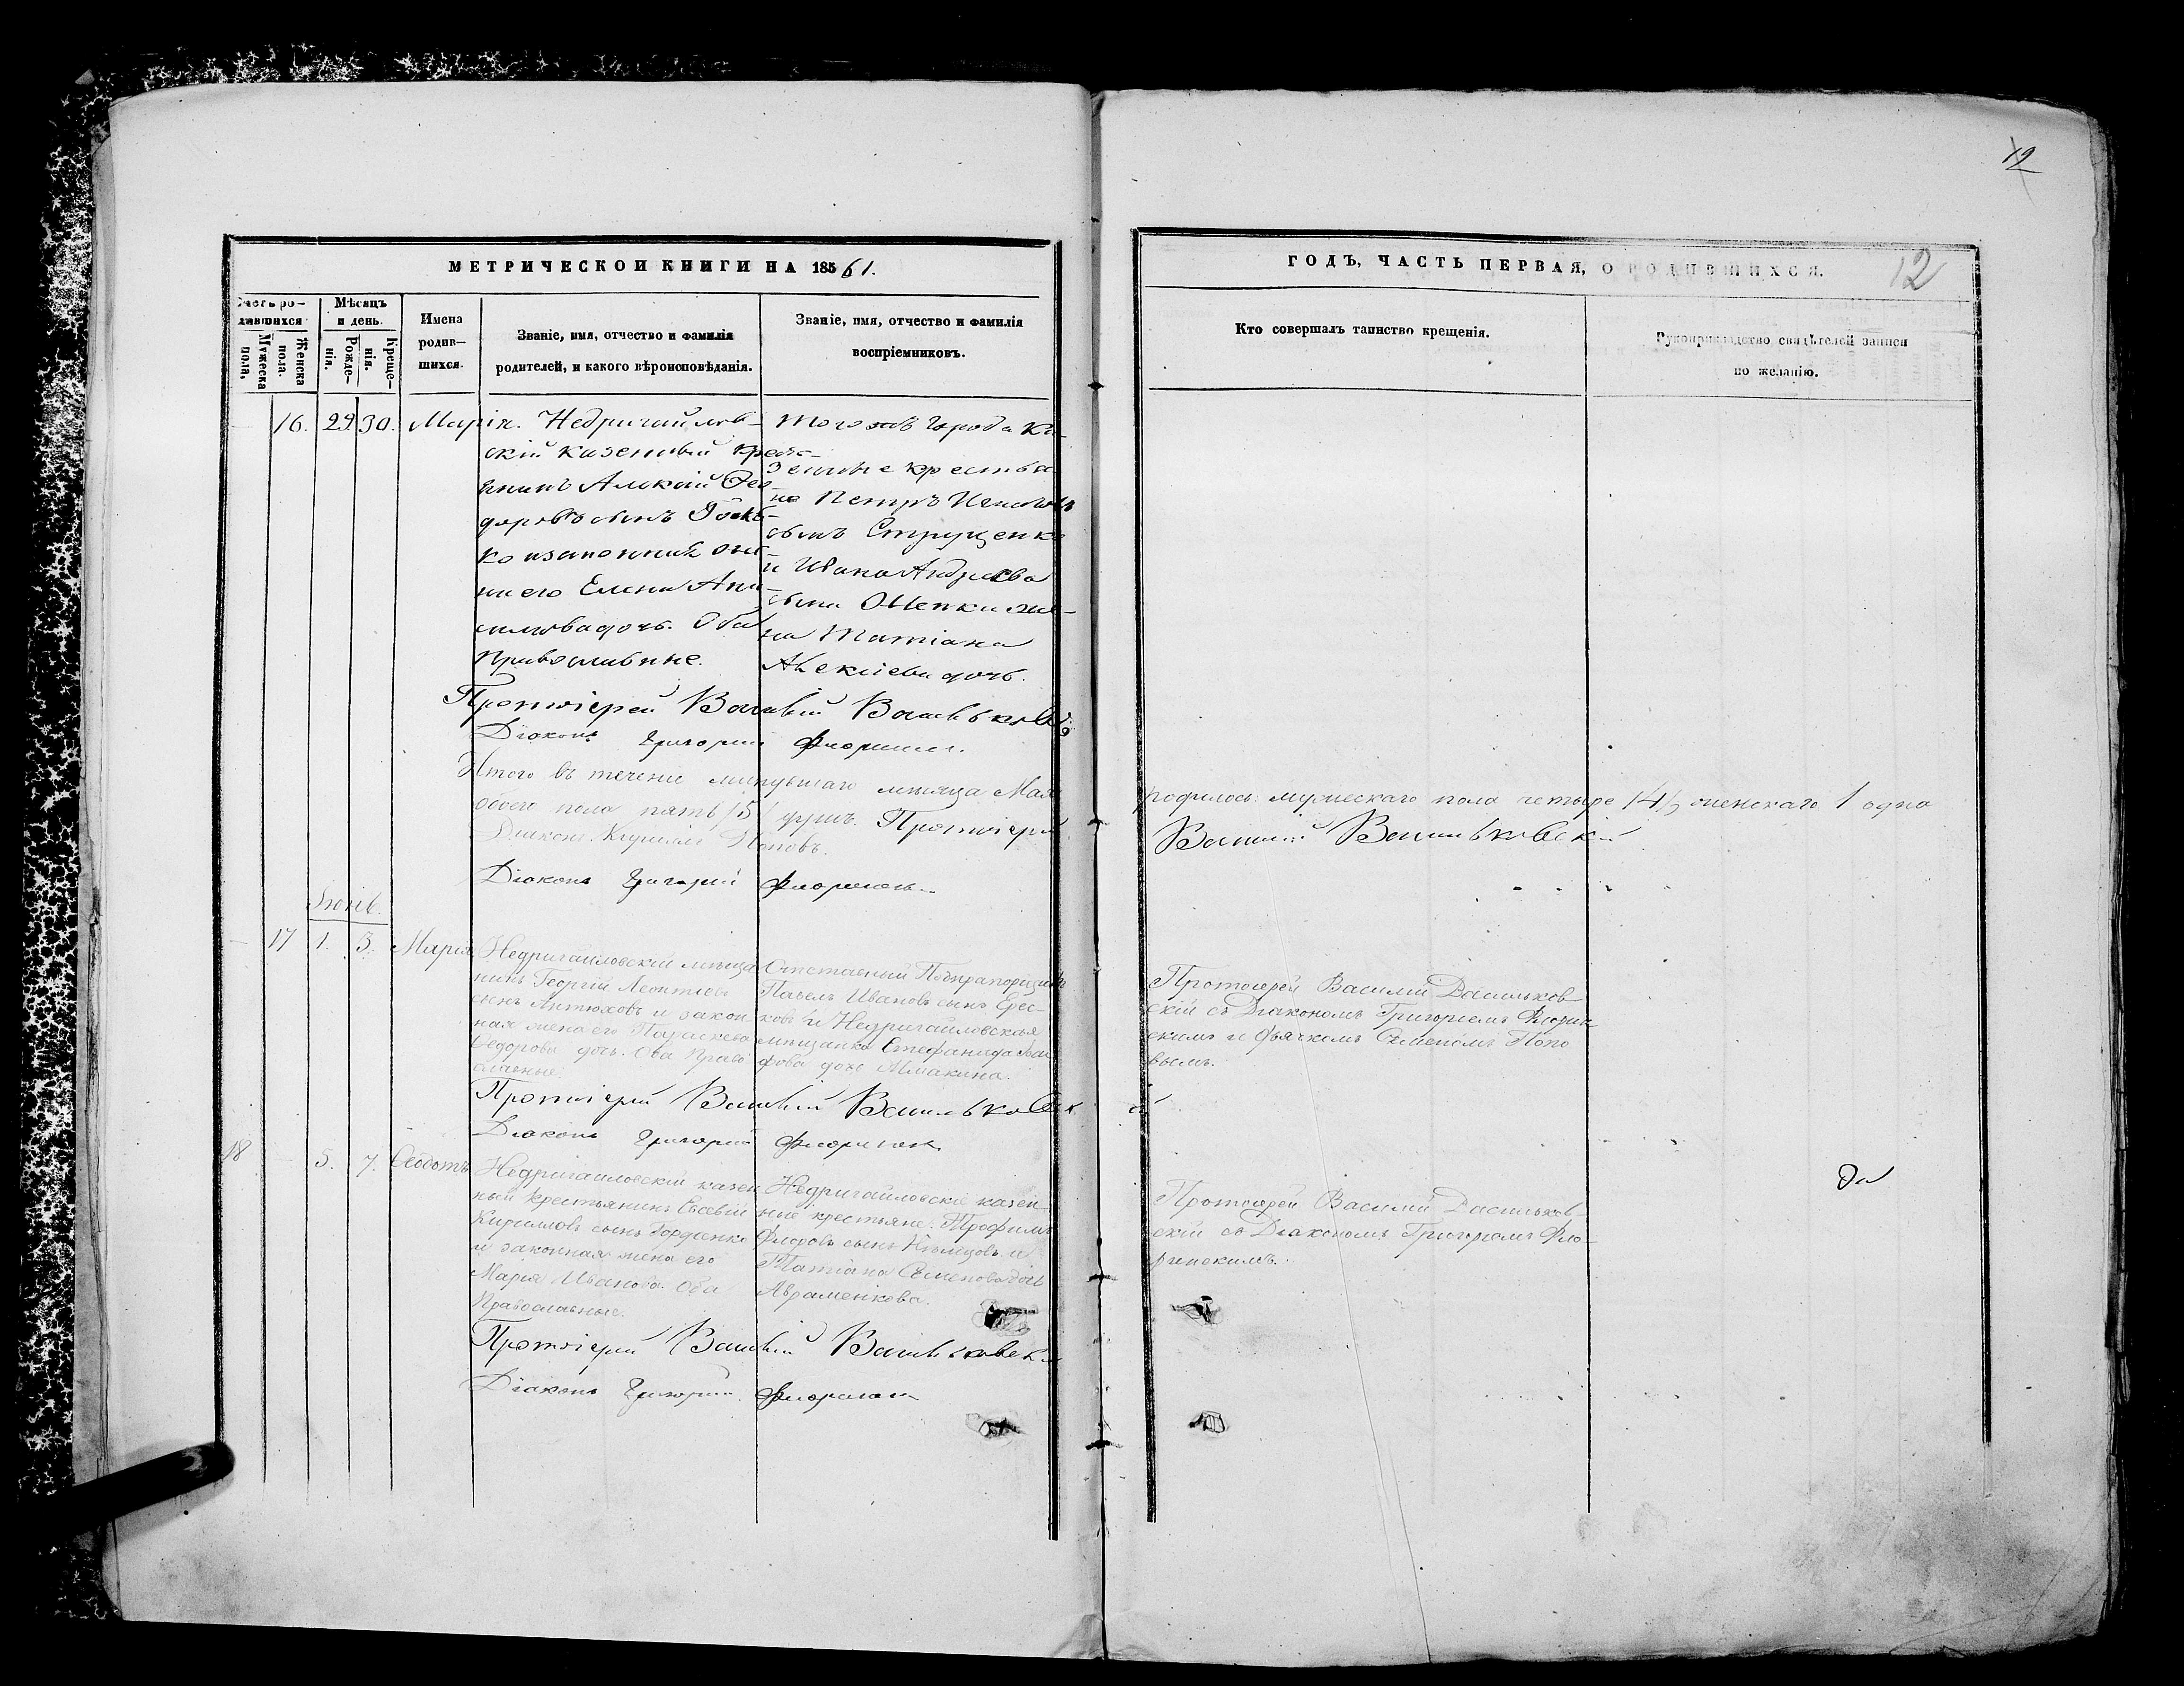 12
МЕТРИЧЕСКОЙ КНИГИ НА 18561.
ГОДЪ, ЧАСТЬ ПЕРВАЯ, О РОДИВШИХСЯ. 12
Счетъ ро-
дившихся
Мужеска пола.
Женска пола.
Мѣсяцъ
и день.
Рожде-
нія.
Креще-
нія.
Имена
родив-
шихся.
Званіе, имя, отчество и фамилія
родителей, и какого вѣроисповѣданія.
Званіе, имя, отчество и фамилія
воспріемниковъ.
Кто совершалъ таинство крещенія.
Рукоприкладство свидѣтелей записи
по желанію.
16. 29. 30. Марія.
Недригайлов-
скій казенный кресть-
янинъ Алексій Ѳео-
доровъ сынъ
ко и законная же-
на его Елена
дочь. Оба
Православные.
Того жъ города ка-
зенные крестья-
не Петръ
сынъ Струценко
и Ивана Андреева
сына жe-
на Татіана
Алексіева дочь.
Протоіерей Василій Васильковскій
Діаконъ Григорій Флоринскій
Итого въ теченіе минувшаго мѣсяца Мая
родилось: мужескаго пола четыре /4/, женскаго 1 одна
обоего пола пять /5/ душъ. Протоіерей
Василій Васильковскій
Діаконъ Кириллъ Поповъ.
Діаконъ Григорій Флоринскій
Іюнь.
17 1. 3. Марія
Недригайловскій мѣща-
нинъ Георгій Леонтіевъ
сынъ Антюховъ и закон-
ная жена его Параскева
Ѳедорова дочь. Оба Право-
славные.
Отставный Подпрапорщикъ
Павелъ Ивановъ сынъ Ерес-
ковъ и Недригайловская
мѣщанка Стефанида
дочь Алмакина.
Протоіерей Василій Васильков-
скій съ Діакономъ Григоріемъ Флорин-
скимъ и дьячкомъ Семеномъ Попо-
вымъ.
Протоіерей Василій Васильковскій
Діаконъ Григорій Флоринскій
18 5. 7. Ѳеодотъ
Недригайловскій казен-
ный крестьянинъ Евсевій
Кирилловъ сынъ Гордіенко
и законная жена его
Марія Иванова. Оба
Православные.
Недригайловскіе казен-
ные крестьяне: Трофимъ
Флоровъ сынъ Нѣмцовъ и
Татіана Семенова дочь
Авраменкова.
Протоіерей Василій Васильков-
скій съ Діакономъ Григоріемъ Фло-
ринскимъ.
Протоіерей Василій Васильковскій
Діаконъ Григорій Флоринскій